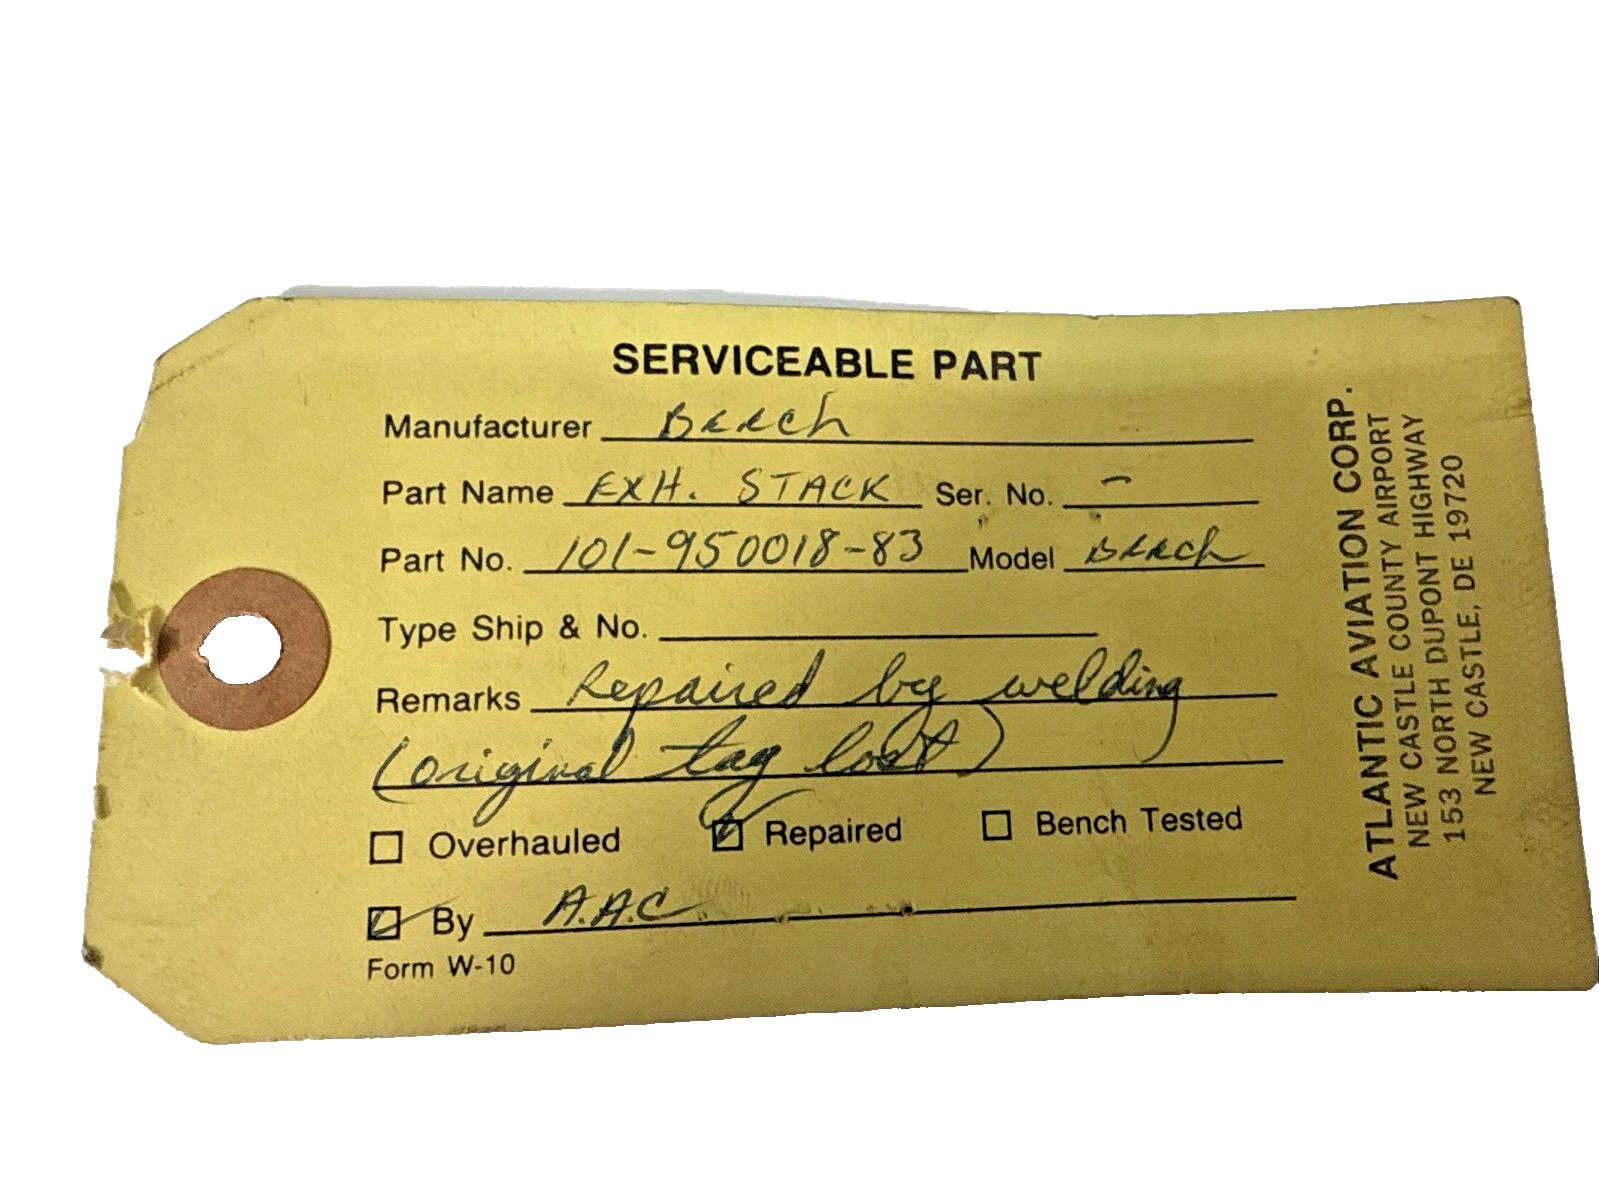 SERVICEABLE PART
Manufacturer Beech
Part Name EXH. STACK Ser. No. -
Part No. 101-950018-83 Model Beech
Type Ship & No.
Remarks Repaired by welding
(original tag lost)
Overhauled Repaired Bench Tested
By A.A.C
Form W-10
ATLANTIC AVIATION CORP.
NEW CASTLE COUNTY AIRPORT
153 NORTH DUPONT HIGHWAY
NEW CASTLE, DE 19720